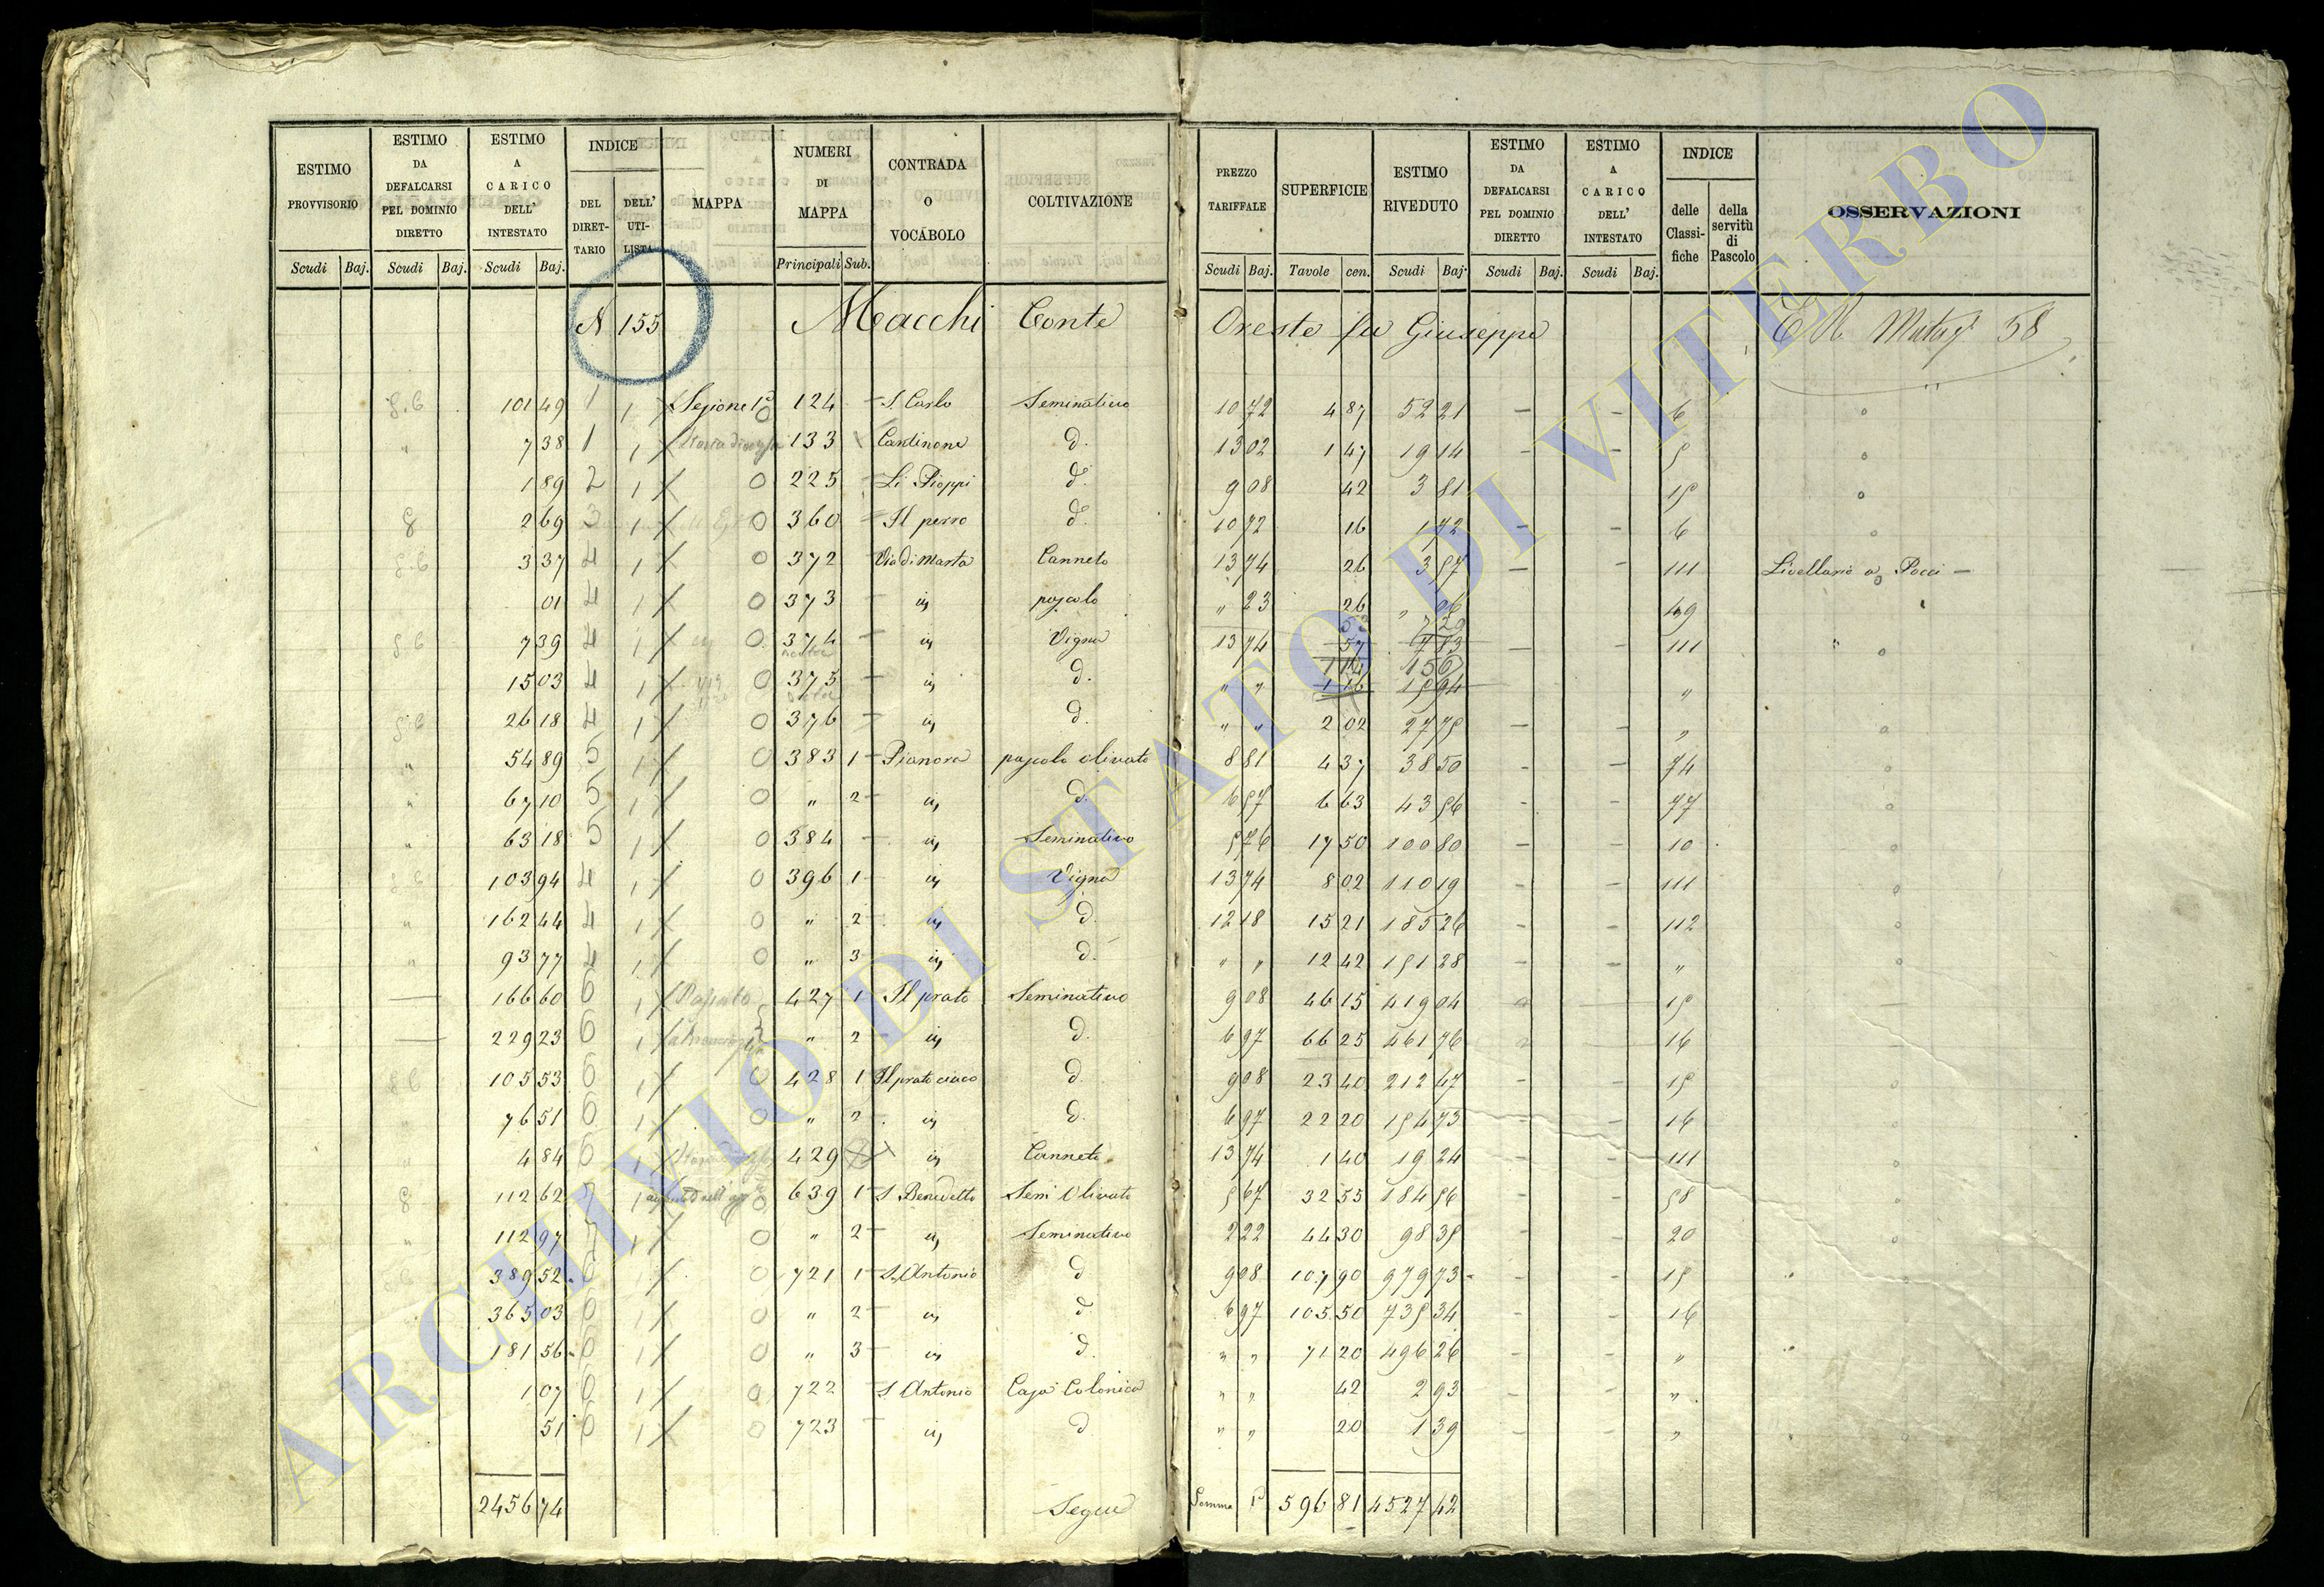 ESTIMO PROVVISORIO Scudi Baj.
ESTIMO DA DEFALCARSI PEL DOMINIO DIRETTO Scudi Baj.
ESTIMO A CARICO DELL' INTESTATO Scudi Baj.
INDICE DEL DIRET-TARIO DELL' UTI-LISTA
MAPPA
NUMERI DI MAPPA Principali Sub.
CONTRADA O VOCABOLO
COLTIVAZIONE
PREZZO TARIFFALE Scudi Baj.
SUPERFICIE Tavole cen.
ESTIMO RIVEDUTO Scudi Baj.
ESTIMO DA DEFALCARSI PEL DOMINIO DIRETTO Scudi Baj.
ESTIMO A CARICO DELL' INTESTATO Scudi Baj.
INDICE delle Classi-fiche della servitù di Pascolo
OSSERVAZIONI
N 155 Macchi Conte Oreste fu Giuseppe 58
101 49 1 1 Sezione 1ª 0 124 S. Carlo Seminativo 10 72 4 87 52 21 6
7 38 1 1 133 Cantinone d. 13 02 1 47 19 14
1 89 2 1 0 225 Li Pioppi d. 9 08 42 3 81 15
2 69 3 1 0 360 Il perro d. 10 72 16 1 72 6
3 37 4 1 0 372 Via di Marta Canneto 13 74 26 3 57 111 Livellario a Pocci
01 4 1 0 373 in pascolo " 23 26 " 06
7 39 4 1 0 374 in Vigna 13 74 57 7 83 111
15 03 4 1 0 375 in d. " " 1 16 15 94 "
26 18 4 1 0 376 in d. " " 2 02 27 75 "
54 89 5 1 0 383 1 Pianora pascolo olivato 8 81 4 37 38 50 74
67 10 5 1 0 " 2 in d. 6 57 6 63 43 56 77
63 18 5 1 0 384 in Seminativo 5 76 17 50 100 80 10
103 94 4 1 0 396 1 in Vigna 13 74 8 02 110 19 111
162 44 4 1 0 " 2 in d. 12 18 15 21 185 26 112
93 77 4 1 0 " 3 in d. " " 12 42 151 28 "
166 60 6 1 427 1 Il prato Seminativo 9 08 46 15 419 04 15
229 23 6 1 " 2 in d. 6 97 66 25 461 76 16
105 53 6 1 0 428 1 Il prato cieco d. 9 08 23 40 212 47 15
76 51 6 1 0 " 2 in d. 6 97 22 20 154 73 16
4 84 6 1 429 in Canneto 13 74 1 40 19 24 111
112 62 7 1 0 639 1 S. Benedetto Sem Olivato 5 67 32 55 184 56 58
112 97 7 1 0 " 2 in Seminativo 2 22 44 30 98 35 20
389 52 6 1 0 721 1 S. Antonio d 9 08 107 90 979 73 15
365 03 6 1 0 " 2 in d. 6 97 105 50 735 34 16
181 56 6 1 0 " 3 in d. " " 71 20 496 26 "
1 07 6 1 0 722 S. Antonio Casa Colonica " " 42 2 93 "
51 6 1 0 723 in d " " 20 1 39 "
2456 74 Segue Somma 596 81 4527 42
ARCHIVIO DI STATO DI VITERBO